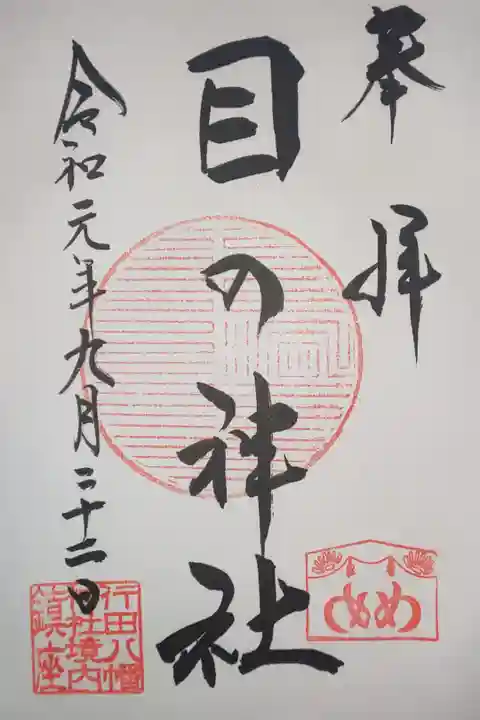 奉拝
目の神社
令和元年九月二十二日
めめ
行田八幡
神社境内
鎮座